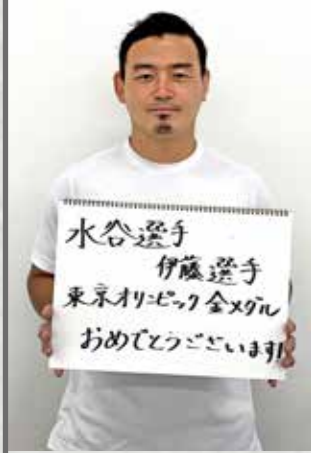 水谷選手
伊藤選手
東京オリンピック金メダル
おめでとうございます!